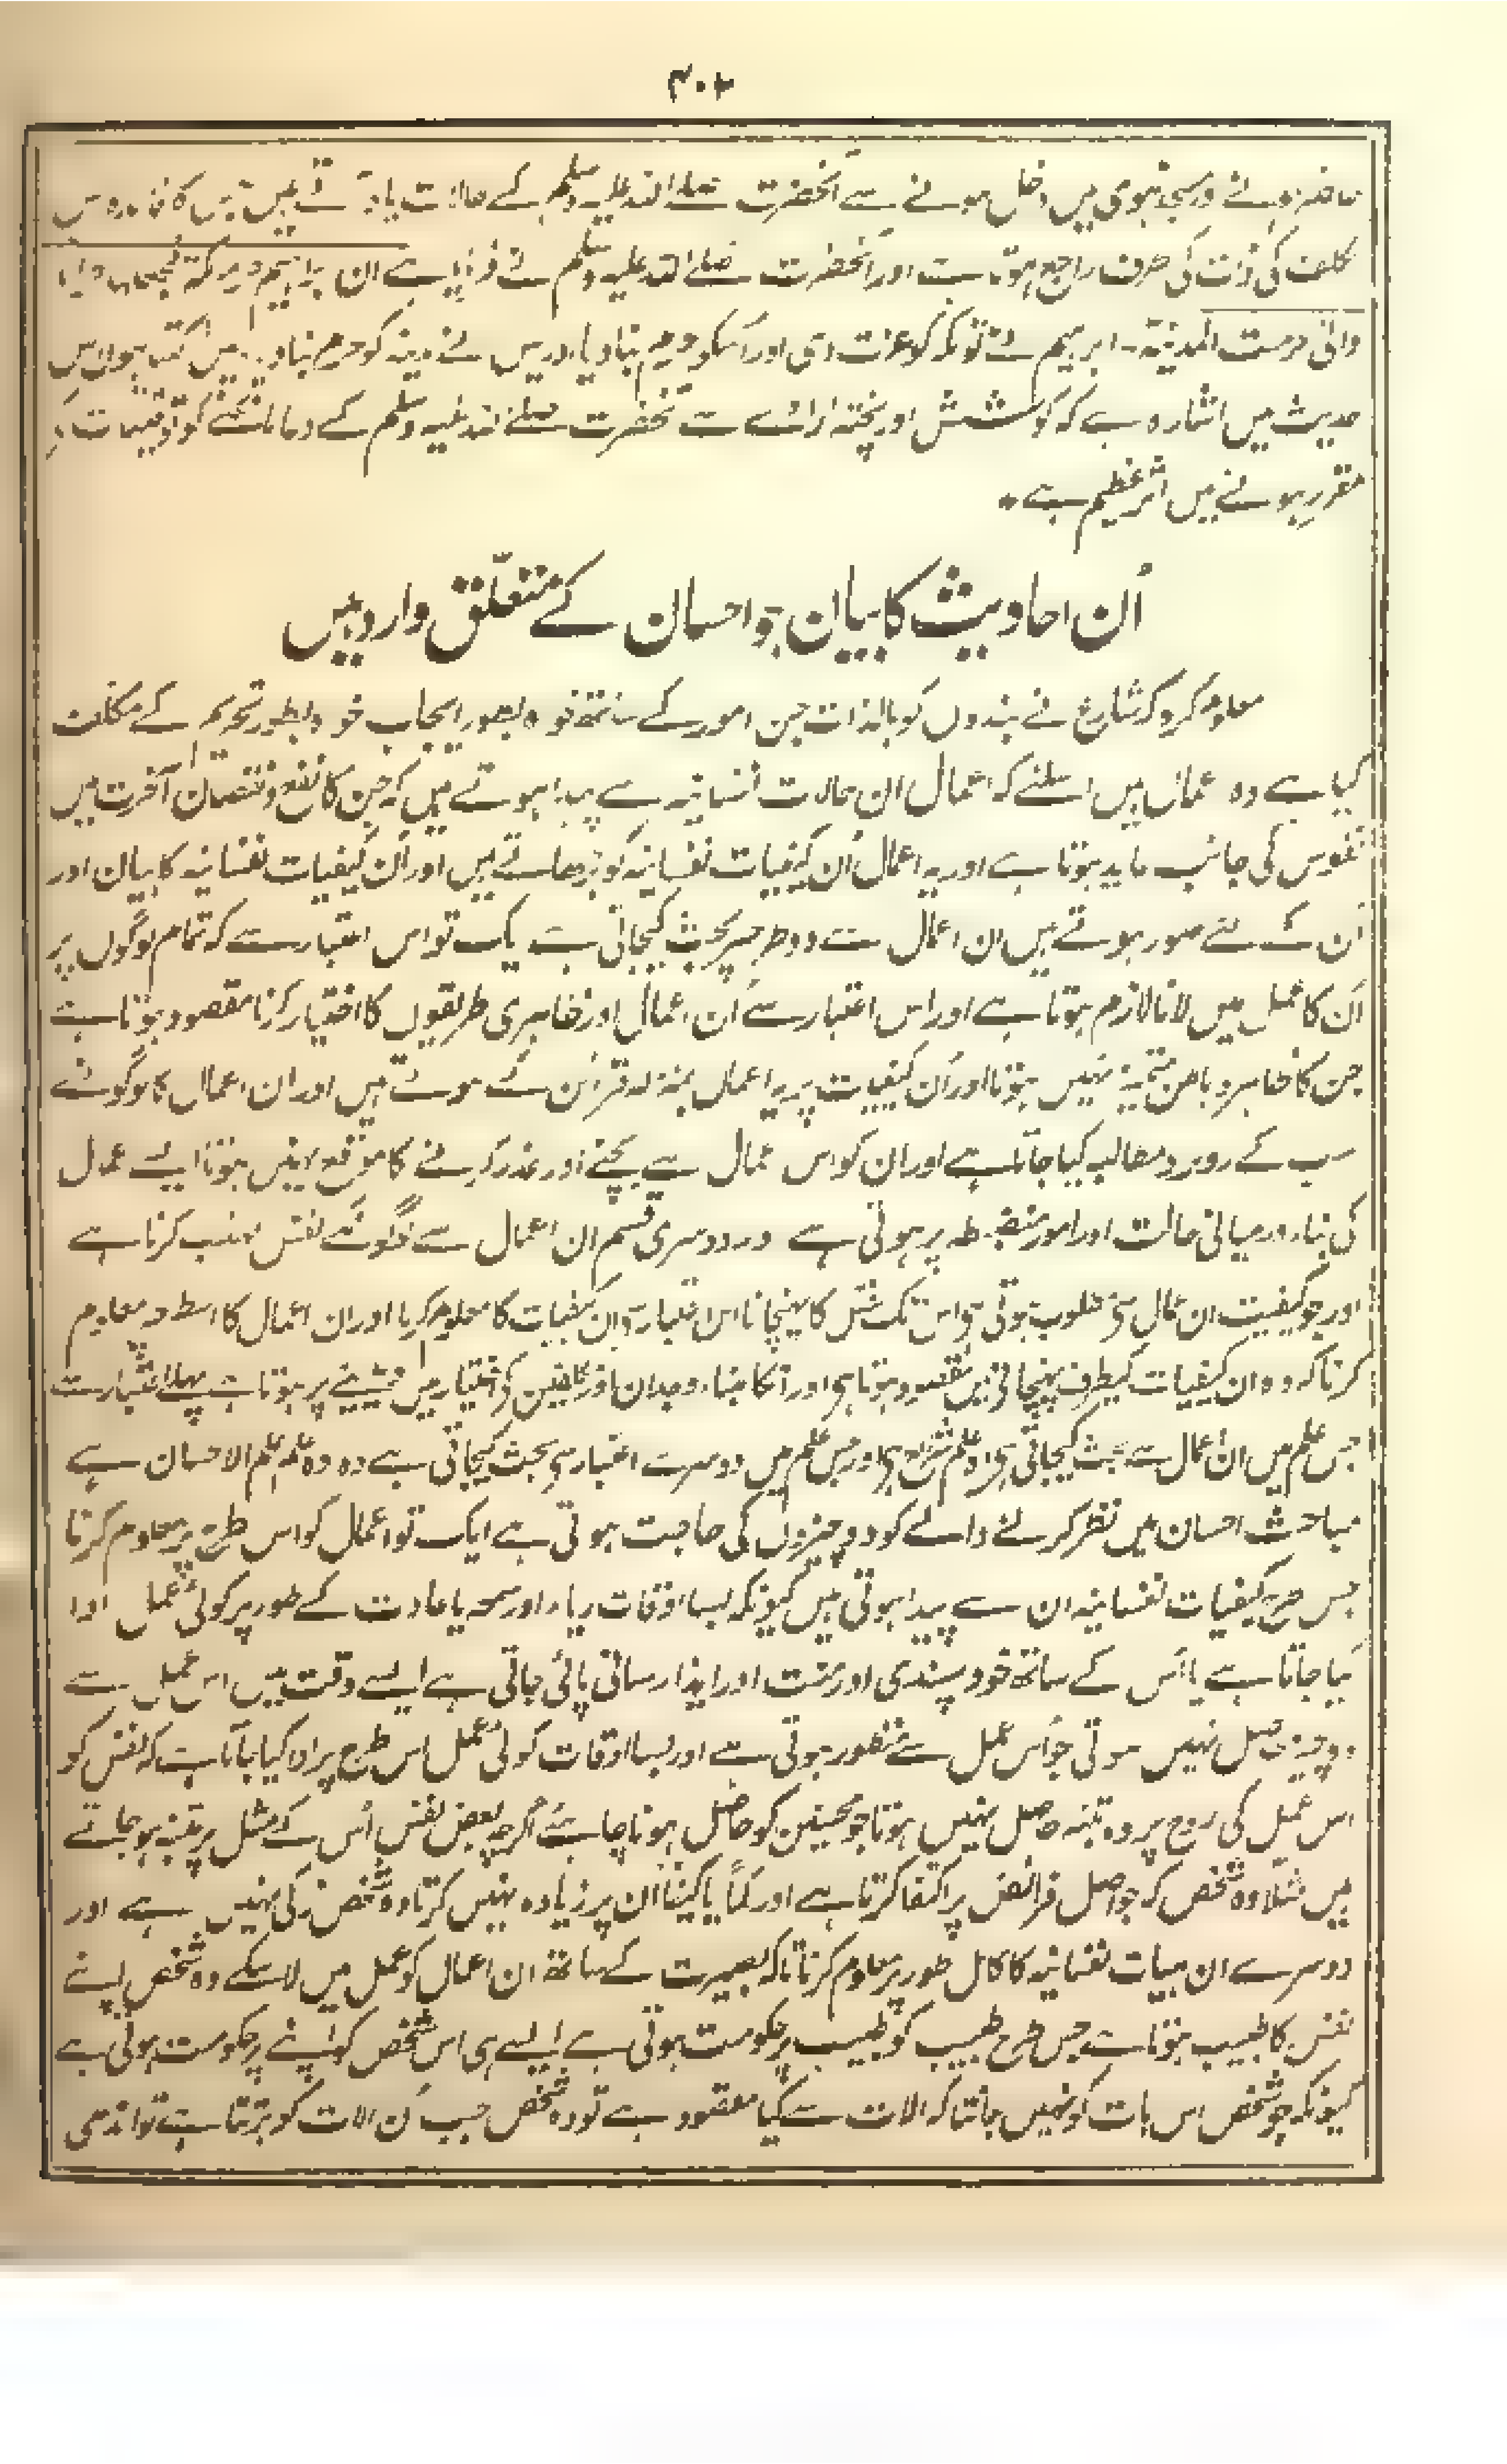 ۴۰۲
حاضر ہونے و مسجد نبوی میں داخل ہونے سے آنحضرت صلے اللہ علیہ وسلم کے حالات یاد آتے ہیں اس کا فائدہ اس
مکلف کی ذات کی طرف راجع ہوتا ہے اور آنحضرت صلے اللہ علیہ وسلم نے فرمایا ہے ان ابراہیم حرم مکۃ فجعلہا حراما
وانی حرمت المدینۃ۔ ابراہیم نے تو مکہ کو عزت دی اور اسکو حرم بنا دیا اور میں نے مدینہ کو حرم بنا دیا۔ میں کہتا ہوں اس
حدیث میں اشارہ ہے کہ کوشش اور پختہ ارادے سے آنحضرت صلے اللہ علیہ وسلم کے دعا مانگنے کو توقیتات کے
مقرر ہونے میں اثر عظیم ہے *
اُن احادیث کا بیان جو احسان کے متعلق وارد ہیں
معلوم کرو کہ شارع نے بندوں کو بالذات جن امور کے ساتھ خواہ بطور ایجاب خواہ بطور تحریم کے مکلف
کیا ہے وہ اعمال ہیں اسلئے کہ اعمال ان حالات نفسانیہ سے پیدا ہوتے ہیں کہ جن کا نفع و نقصان آخرت میں
نفوس کی جانب عاید ہوتا ہے اور یہ اعمال اُن کیفیات نفسانیہ کو بڑھاتے ہیں اور اُن کیفیات نفسانیہ کا بیان اور
اُن کے لئے صور ہوتے ہیں ان اعمال سے دو طرح پر بحث کیجاتی ہے ایک تو اس اعتبار سے کہ تمام لوگوں پر
اُن کا عمل میں لانا لازم ہوتا ہے اور اس اعتبار سے اُن اعمال اور ظاہری طریقوں کا اختیار کرنا مقصود ہوتا ہے
جن کا ظاہر و باطن متحیہ نہیں ہوتا اور اُن کیفیات پر یہ اعمال بمنزلہ قرائن کے ہوتے ہیں اور ان اعمال کا لوگوں سے
سب کے روبرو مطالبہ کیا جاتا ہے اور ان کو اس اعمال سے بچنے اور عذر کرنے کا موقع نہیں ہوتا ایسے اعمال
کی بناء درمیانی حالت اور امور منضبطہ پر ہوتی ہے اور دوسری قسم ان اعمال سے لوگوں کے نفس مہذب کرنا ہے
اور جو کیفیت ان اعمال سے مطلوب ہوتی ہے اس تک نفس کا پہنچانا اس اعتبار سے ان کیفیات کا معلوم کرنا اور ان اعمال کا اسطرح معلوم
کرنا کہ وہ ان کیفیات کیطرف پہنچاتی ہیں مقصود ہوتا ہے اور اسکا بناء وجدان اور مکلفین کی اختیار میں دینے پر ہوتا ہے پہلے اعتبار سے
جس علم میں ان اعمال سے بحث کیجاتی ہے وہ علم شرائع ہے اور جس علم میں دوسرے اعتبار سے بحث کیجاتی ہے وہ علم الاحسان ہے
مباحث احسان میں نظر کرنے والے کو دو چیزوں کی حاجت ہوتی ہے ایک تو اعمال کو اس طرح پر معلوم کرنا
جس طرح کیفیات نفسانیہ ان سے پیدا ہوتی ہیں کیونکہ بسا اوقات ریاء اور سمعہ یا عادت کے طور پر کوئی عمل ادا
کیا جاتا ہے یا اُس کے ساتھ خود پسندی اور منت اور ایذا رسانی پائی جاتی ہے ایسے وقت میں اس عمل سے
وہ چیز حاصل نہیں ہوتی جو اُس عمل سے منظور ہوتی ہے اور بسا اوقات کوئی عمل اس طرح پر ادا کیا جاتا ہے کہ نفس کو
اس عمل کی روح پر وہ تنبہ حاصل نہیں ہوتا جو محسنین کو حاصل ہونا چاہئے اگرچہ بعض نفس اُس کے مثل پر متنبہ ہو جاتے
ہیں مثلاً وہ شخص کہ جو اصل فرائض پر اکتفا کرتا ہے اور کماً یا کیفاً اُن پر زیادہ نہیں کرتا وہ شخص زکی نہیں ہے اور
دوسرے ان ہیئات نفسانیہ کا کامل طور پر معلوم کرنا تاکہ بصیرت کے ساتھ ان اعمال کو عمل میں لاسکے وہ شخص اپنے
نفس کا طبیب ہوتا ہے جس طرح طبیب کو طبیعت پر حکومت ہوتی ہے ایسے ہی اس شخص کو اپنے پر حکومت ہوتی ہے
کیونکہ جو شخص اس بات کو نہیں جانتا کہ الات سے کیا مقصود ہے تو وہ شخص جب اُن الات کو برتتا ہے تو اندھی